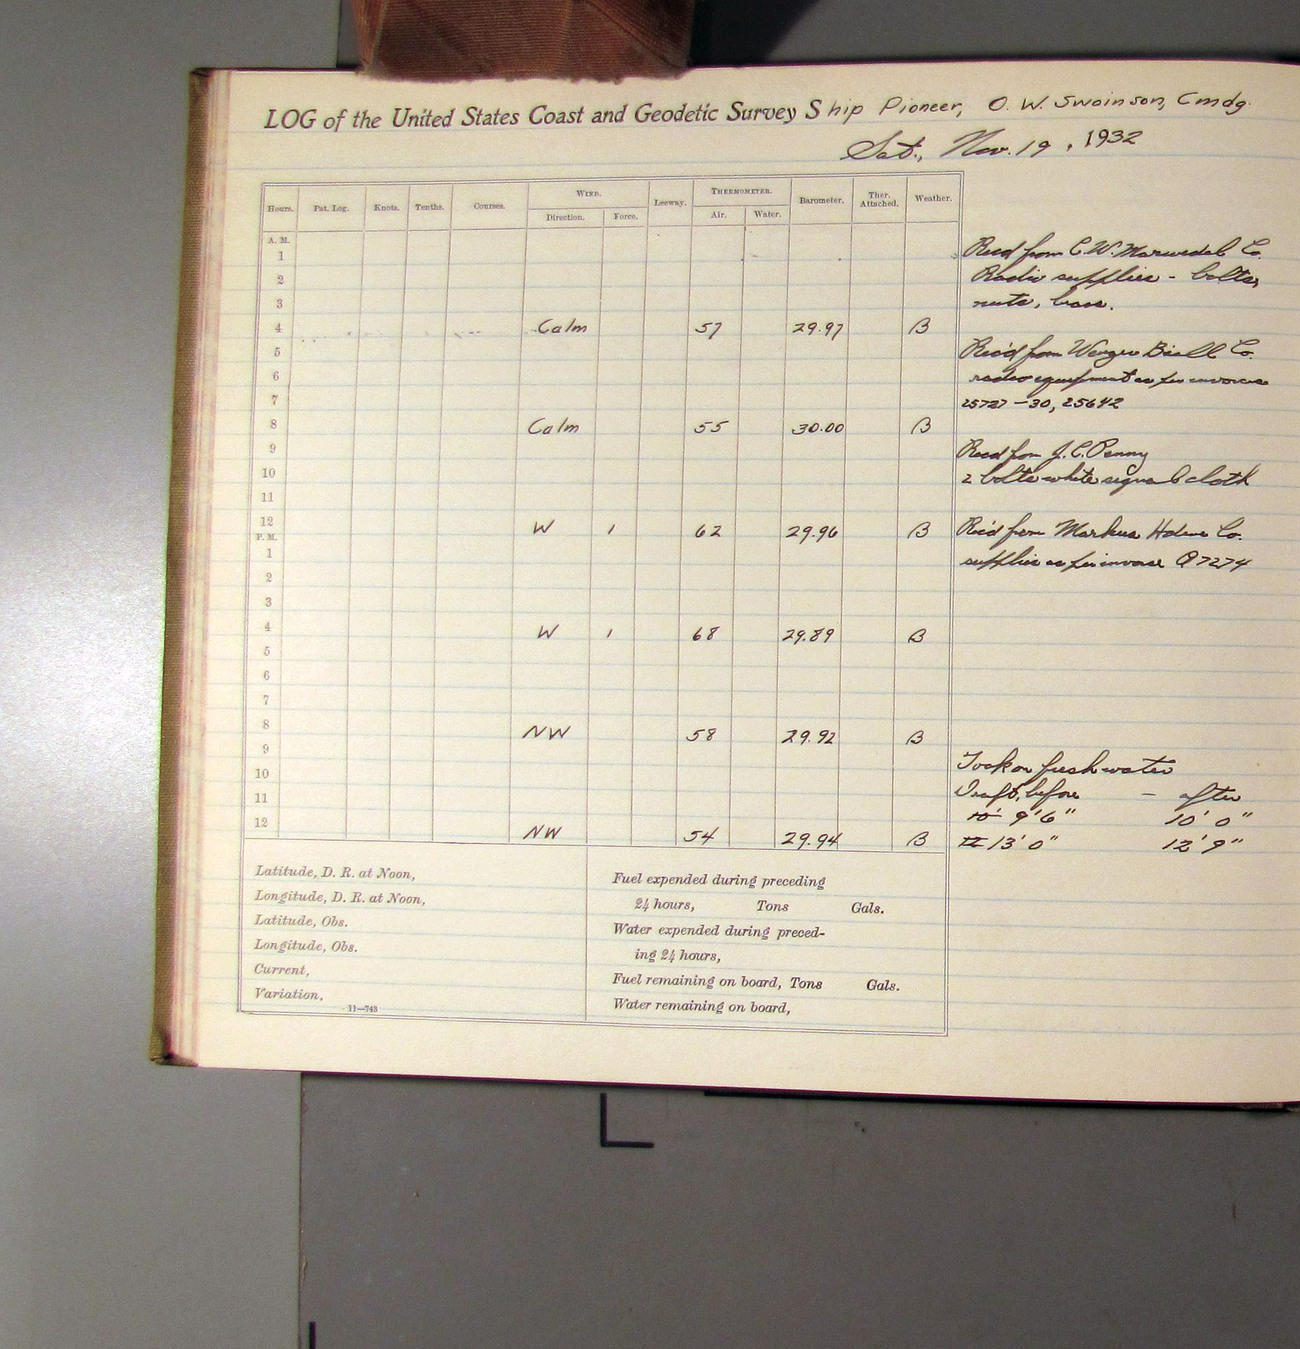 LOG of the United States Coast and Geodetic Survey Ship Pioneer, O. W. Swainson, Cmdg.
Sat., Nov. 19, 1932
Hours. Pat. Log. Knots. Tenths. Courses. WIND. Leeway. THERMOMETER. Barometer. Ther. Attached. Weather.
Direction. Force. Air. Water.
A. M.
1 Rec'd from C. W. Marwedel Co.
2 Radio supplies - bolts,
3 nuts, brass.
4 Calm 57 29.97 B
5 Rec'd from Wenger Brill Co.
6 radio equipment as per invoices
7 25727-30, 25642
8 Calm 55 30.00 B
9 Recd from J. C. Penny
10 2 bolts white signal cloth
11
12 W 1 62 29.96 B Rec'd from Markus Co.
P. M.
1 supplies as per invoice 7274
2
3
4 W 1 68 29.89 B
5
6
7
8 NW 58 29.92 B
9 Took on fresh water
10 Draft, before - after
11 10' 9'6" 10' 0"
12 NW 54 29.94 B 13' 0" 12' 9"
Latitude, D. R. at Noon,
Longitude, D. R. at Noon,
Latitude, Obs.
Longitude, Obs.
Current,
Variation,
11—743
Fuel expended during preceding
24 hours, Tons Gals.
Water expended during preced-
ing 24 hours,
Fuel remaining on board, Tons Gals.
Water remaining on board,